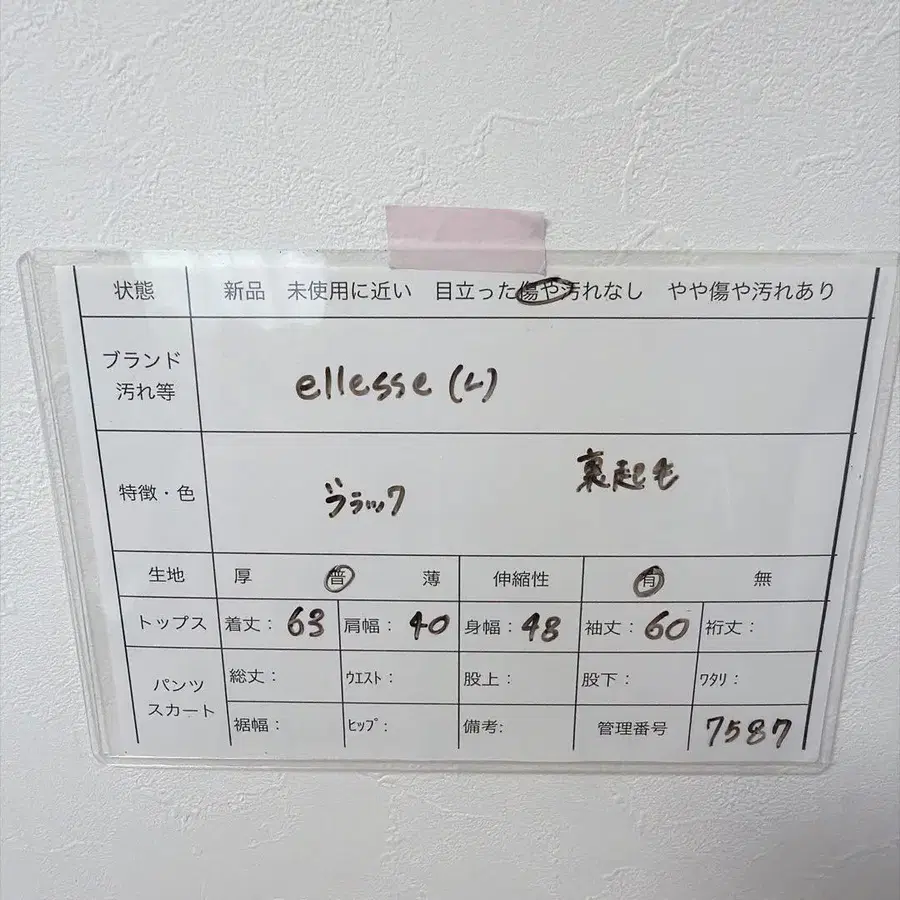 状態 新品 未使用に近い 目立った傷や汚れなし やや傷や汚れあり
ブランド
汚れ等
ellesse (L)
特徴・色
ブラック 裏起毛
生地 厚 普 薄 伸縮性 有 無
トップス 着丈: 63 肩幅: 40 身幅: 48 袖丈: 60 裄丈:
パンツ
スカート
総丈: ウエスト: 股上: 股下: ワタリ:
裾幅: ヒップ: 備考: 管理番号 7587